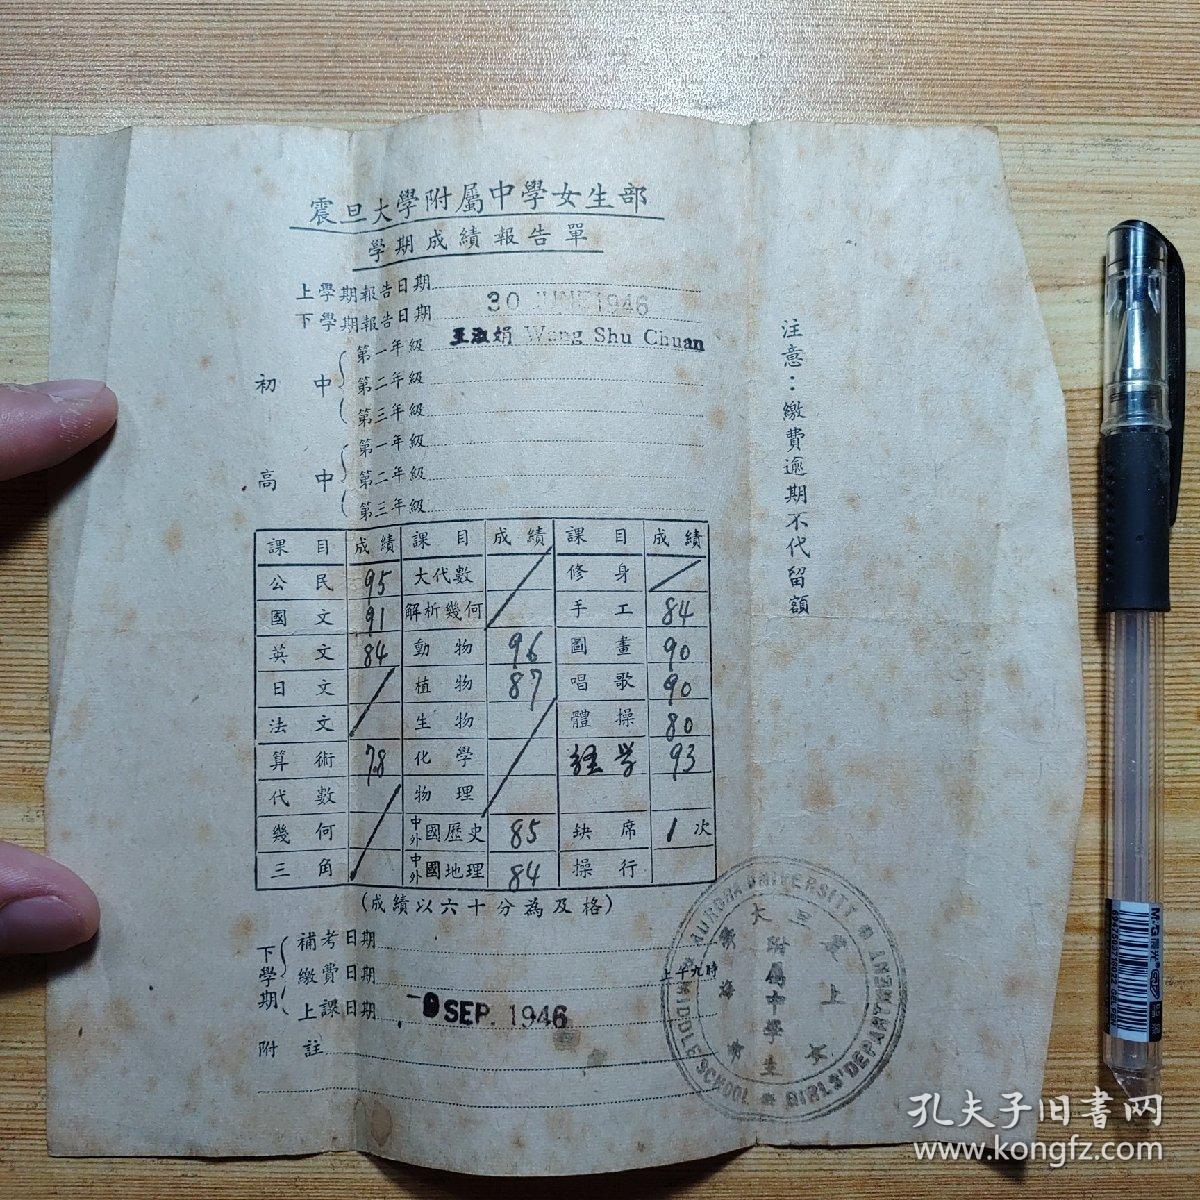 震旦大學附屬中學女生部
學期成績報告單
上學期報告日期
下學期報告日期 30 JUNE 1946
初中 第一年級 王淑娟 Wang Shu Chuan
第二年級
第三年級
高中 第一年級
第二年級
第三年級
課目 成績 課目 成績 課目 成績
公民 95 大代數 修身
國文 91 解析幾何 手工 84
英文 84 動物 96 圖畫 90
日文 植物 87 唱歌 90
法文 生物 體操 80
算術 78 化學 经学 93
代數 物理
幾何 中外國歷史 85 缺席 1次
三角 中外國地理 84 操行
(成績以六十分為及格)
下學期 補考日期
繳費日期 上午九時
上課日期 -9 SEP. 1946
附註
注意：繳費逾期不代留額
AURORA UNIVERSITY
MIDDLE SCHOOL
GIRLS' DEPARTMENT
震旦大學
附屬中學
女生部
上海
M&G晨光
孔夫子旧书网
www.kongfz.com